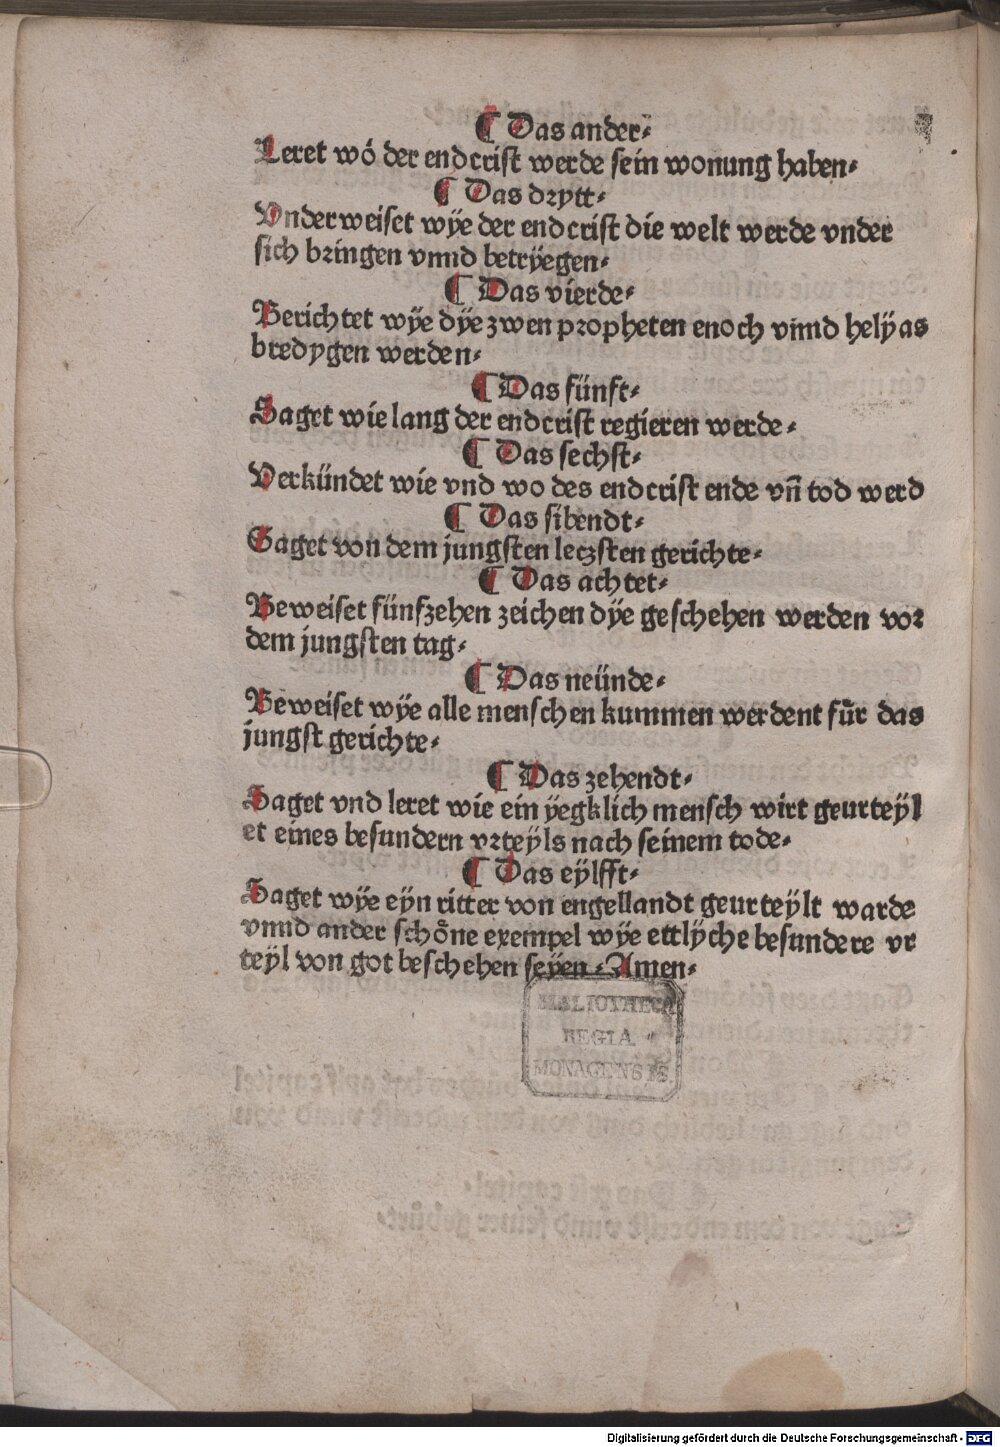 ¶ Das ander⸗
Leret wó der endcrist werde sein wonung haben⸗
¶ Das drytt⸗
Vnderweiset wÿe der endcrist die welt werde vnder
sich bringen vnnd betrÿegen⸗
¶ Das vierde⸗
Berichtet wÿe dÿe zwen propheten enoch vnnd helÿas
bredygen werden⸗
¶ Das fünft⸗
Saget wie lang der endcrist regieren werde⸗
¶ Das sechst⸗
Verkündet wie vnd wo des endcrist ende vn̄ tod werd
¶ Das sibendt⸗
Saget von dem jungsten leczsten gerichte⸗
¶ Das achtet⸗
Beweiset fünfzehen zeichen dÿe geschehen werden vor
dem jungsten tag⸗
¶ Das neünde⸗
Beweiset wÿe alle menschen kummen werdent fu̇r das
jungst gerichte⸗
¶ Das zehendt⸗
Saget vnd leret wie ein ÿegklich mensch wirt geurteÿl
et eines besundern vrteÿls nach seinem tode⸗
¶ Das eÿlfft⸗
Saget wÿe eÿn ritter von engellandt geurteÿlt warde
vnnd ander schöne exempel wÿe ettlÿche besundere vr
teÿl von got beschehen seÿen⸗Amen⸗
BIBLIOTHECA
REGIA
MONACENSIS
Digitalisierung gefördert durch die Deutsche Forschungsgemeinschaft - DFG